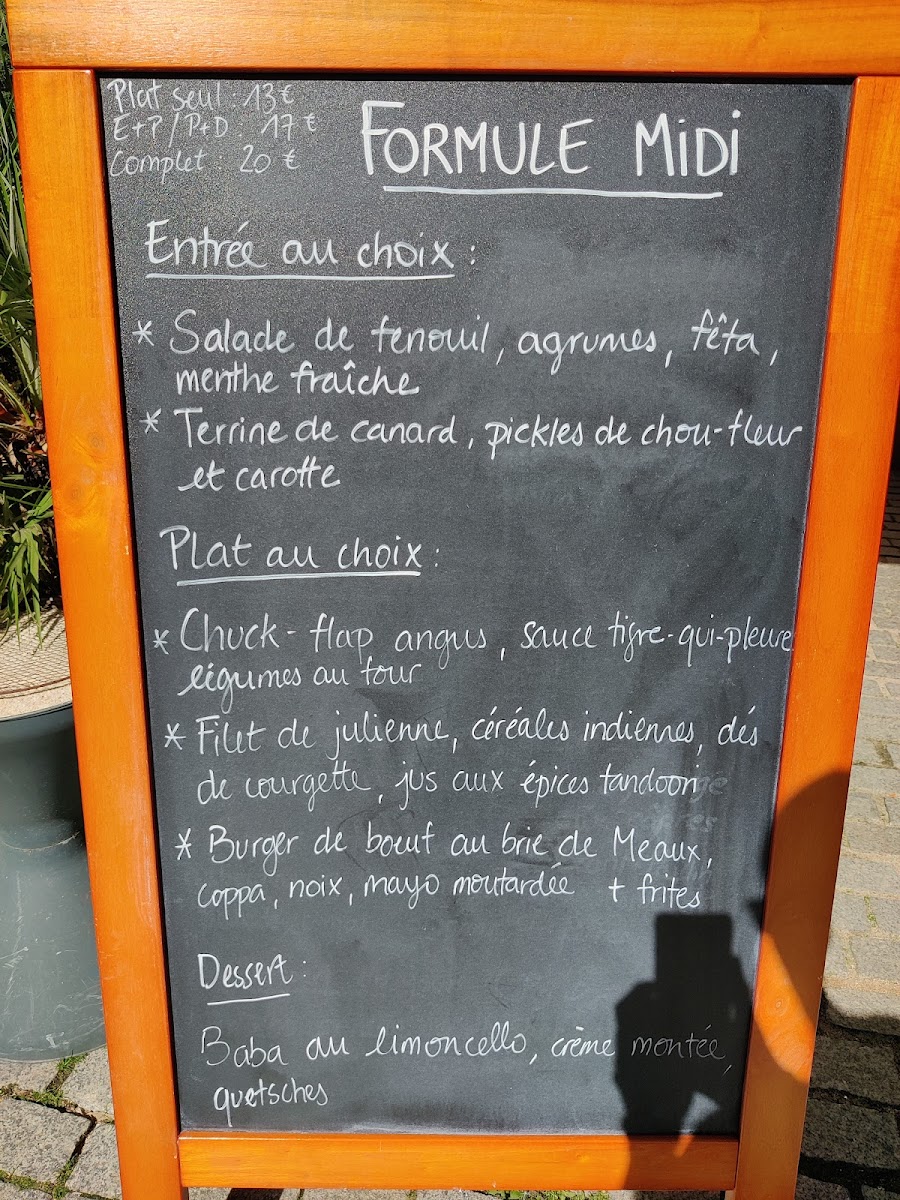 Plat seul : 13€
E+P / P+D : 17 €
Complet : 20 €
FORMULE MiDi
Entrée au choix :
* Salade de fenouil, agrumes, fêta,
menthe fraîche
* Terrine de canard, pickles de chou-fleur
et carotte
Plat au choix :
* Chuck-flap angus, sauce tigre-qui-pleure
légumes au four
* Filet de julienne, céréales indiennes, dés
de courgette, jus aux épices tandoori
* Burger de bœuf au brie de Meaux,
coppa, noix, mayo moutardée + frites
Dessert :
Baba au limoncello, crème montée,
quetsches